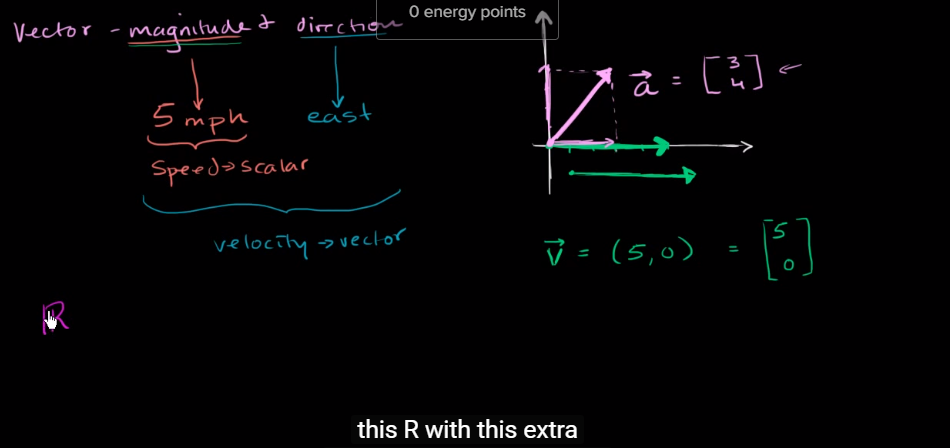 0 energy points
Vector - magnitude & direction
5 mph
east
Speed → scalar
velocity → vector
a⃗ = [3
4]
v⃗ = (5,0) = [5
0]
ℝ
this R with this extra